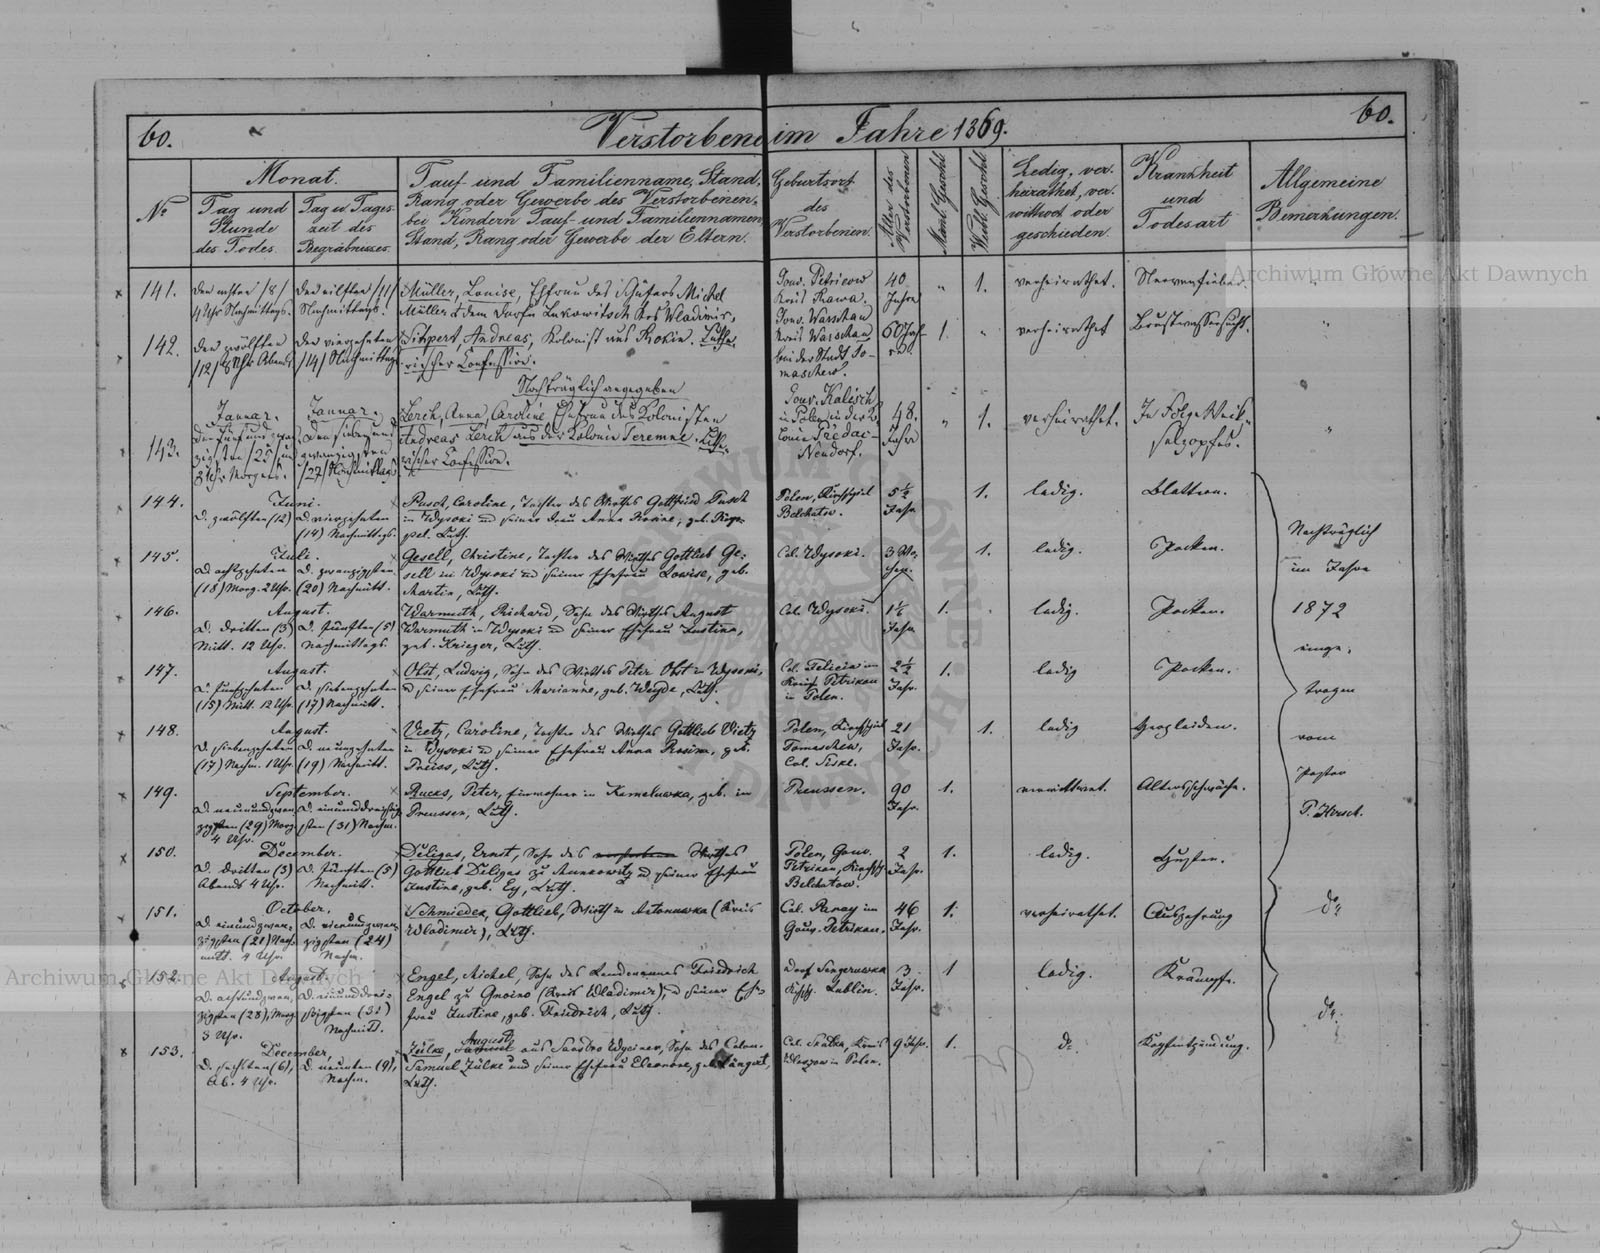 60.
Verstorbene im Jahre 1869.
60.
No
Monat.
Tag und
Stunde
des Todes
Tag u. Tages-
zeit des
Begräbnisses.
Tauf- und Familienname, Stand,
Rang oder Gewerbe des Verstorbenen,
bei Kindern Tauf- und Familiennamen,
Stand, Rang oder Gewerbe der Eltern.
Geburtsort
des
Verstorbenen.
Alter des
Verstorbenen
Männl. Geschl.
Weibl. Geschl.
Ledig, ver-
heirathet, ver-
wittwet oder
geschieden.
Krankheit
und
Todesart
Allgemeine
Bemerkungen.
141.
Den achten /8/
4 Uhr Nachmittags.
Den eilften /11/
Nachmittags.
Müller, Louise, Ehefrau des Michel
Müller dem Dorfe Lukowitsch Wladimir,
Gouv. Petricow
Kreis Rawa.
40
Jahre
"
1.
verheirathet.
Nervenfieber.
142.
Den zwölften
/12/ 8 Uhr Abends
Den vierzehnten
/14/ Nachmittags
Andreas, Kolonist aus Luthe-
rischer Confession.
Gouv. Warschau
Kreis Warschau
bei der Stadt To-
maschew.
60 Jah-
re.
1.
"
verheirathet
Brustwassersucht.
"
Nachträglich angegeben
143.
Januar.
Den fünf und zwan-
zigsten /25/ um
8 Uhr Morgens.
Januar.
Den sieben und
zwanzigsten
/27/ Nachmittags
Lerch, Anna Caroline, Ehefrau des Kolonisten
Andreas Lerch aus der Kolonie Teremne. Luthe-
rischer Confession.
Gouv. Kalisch
in Polen in der Co-
lonie
Neudorf.
48.
Jahre
"
1.
verheirathet.
In Folge Weich-
selzopfes.
"
144.
Juni.
D. zwölften (12)
D. vierzehnten
(14) Nachmittgs.
Pusch, Caroline, Tochter des Wirthes Gottfried Pusch
in Wysoki u seiner Frau Anna Rosine, geb.
Luth.
Polen, Kirchspiel
Belchatow.
5 1/2
Jahr
1.
ledig.
Blattern.
145.
Juli.
D. achtzehnten
(18) Morg. 2 Uhr.
D. zwanzigsten
(20) Nachmitt.
Gesell, Christine, Tochter des Wirthes Gottlieb Ge-
sell in Wysoki u seiner Ehefrau Lowise, geb.
Martin, Luth.
Col. Wysoki.
3 Wo-
chen.
1.
ledig.
Pocken.
146.
August.
D. dritten (3)
Mitt. 12 Uhr.
D. fünften (5)
Nachmittags.
Warmuth, Richard, Sohn des Wirthes August
Warmuth in Wysoki u seiner Ehefrau Justine,
geb. Krieger, Luth.
Col. Wysoki.
Jahr
1.
ledig.
Pocken.
147.
August.
D. fünfzehnten
(15) Mitt. 12 Uhr.
D. siebenzehnten
(17) Nachmitt.
Obst, Ludwig, Sohn des Wirthes Peter Obst in Wysoki,
u seiner Ehefrau Marianne, geb. Weyde, Luth.
Col. Felicia im
Kreis Petrikau
in Polen.
2 1/2
Jahr.
1.
ledig
Pocken.
148.
August.
D. siebenzehnten
(17) Nachm. 1 Uhr.
D. neunzehnten
(19) Nachmitt.
Vietz, Caroline, Tochter des Wirthes Gottlieb Vietz
in Wysoki u seiner Ehefrau Anna Rosine, geb.
Preuss, Luth.
Polen, Kirchspiel
Tomaschew,
Col.
21
Jahr.
1.
ledig
Herzleiden.
149.
September.
D. neunundzwan-
zigsten (29) Morg.
4 Uhr.
D. einunddreissig-
sten (31) Nachm.
Rucks, Peter, Einwohner in Kameluwka, geb. in
Preussen, Luth.
Preussen.
90
Jahr.
1.
verwittwet.
Altersschwäche.
150.
December.
D. dritten (3)
Abends 4 Uhr.
D. fünften (5)
Nachmitt.
Deligas, Ernst, Sohn des Wirthes
Gottlieb Deligas zu u seiner Ehefrau
Justine, geb. Ey, Luth.
Polen, Gouv.
Petrikau, Kirchsp.
Belchatow.
2
Jahr.
1.
ledig.
Husten.
151.
October.
D. einundzwan-
zigsten (21) Nach-
mitt. 4 Uhr
D. vierundzwan-
zigsten (24)
Nachm.
Schmieder, Gottlieb, Wirth in Antonuwka (Kreis
Wladimir), Luth.
Col. im
Gouv. Petrikau.
46
Jahr.
1.
verheirathet.
Auszehrung
152.
August.
D. achtundzwan-
zigsten (28), Morg.
3 Uhr.
D. einunddrei-
ssigsten (31)
Nachmitt.
Engel, Michel, Sohn des Landmannes Friedrich
Engel zu Gnoino (Kreis Wladimir), u seiner Ehe-
frau Justine, geb. Friedrich, Luth.
Dorf
Kchsp. Lublin.
3
Jahr.
1
ledig.
Krämpfe.
153.
December,
D. sechsten (6),
Ab. 4 Uhr.
D. neunten (9),
Nachm.
Zülke, August aus Sohn des Colon.
Samuel Zülke und seiner Ehefrau Eleonore, geb.
Luth.
9 Jahr.
1.
do.
Kopfentzündung.
Nachträglich
im Jahre
1872
einge-
tragen
vom
Pastor
P. Kersch.
do
do.
Archiwum Główne Akt Dawnych
Archiwum Główne Akt Dawnych